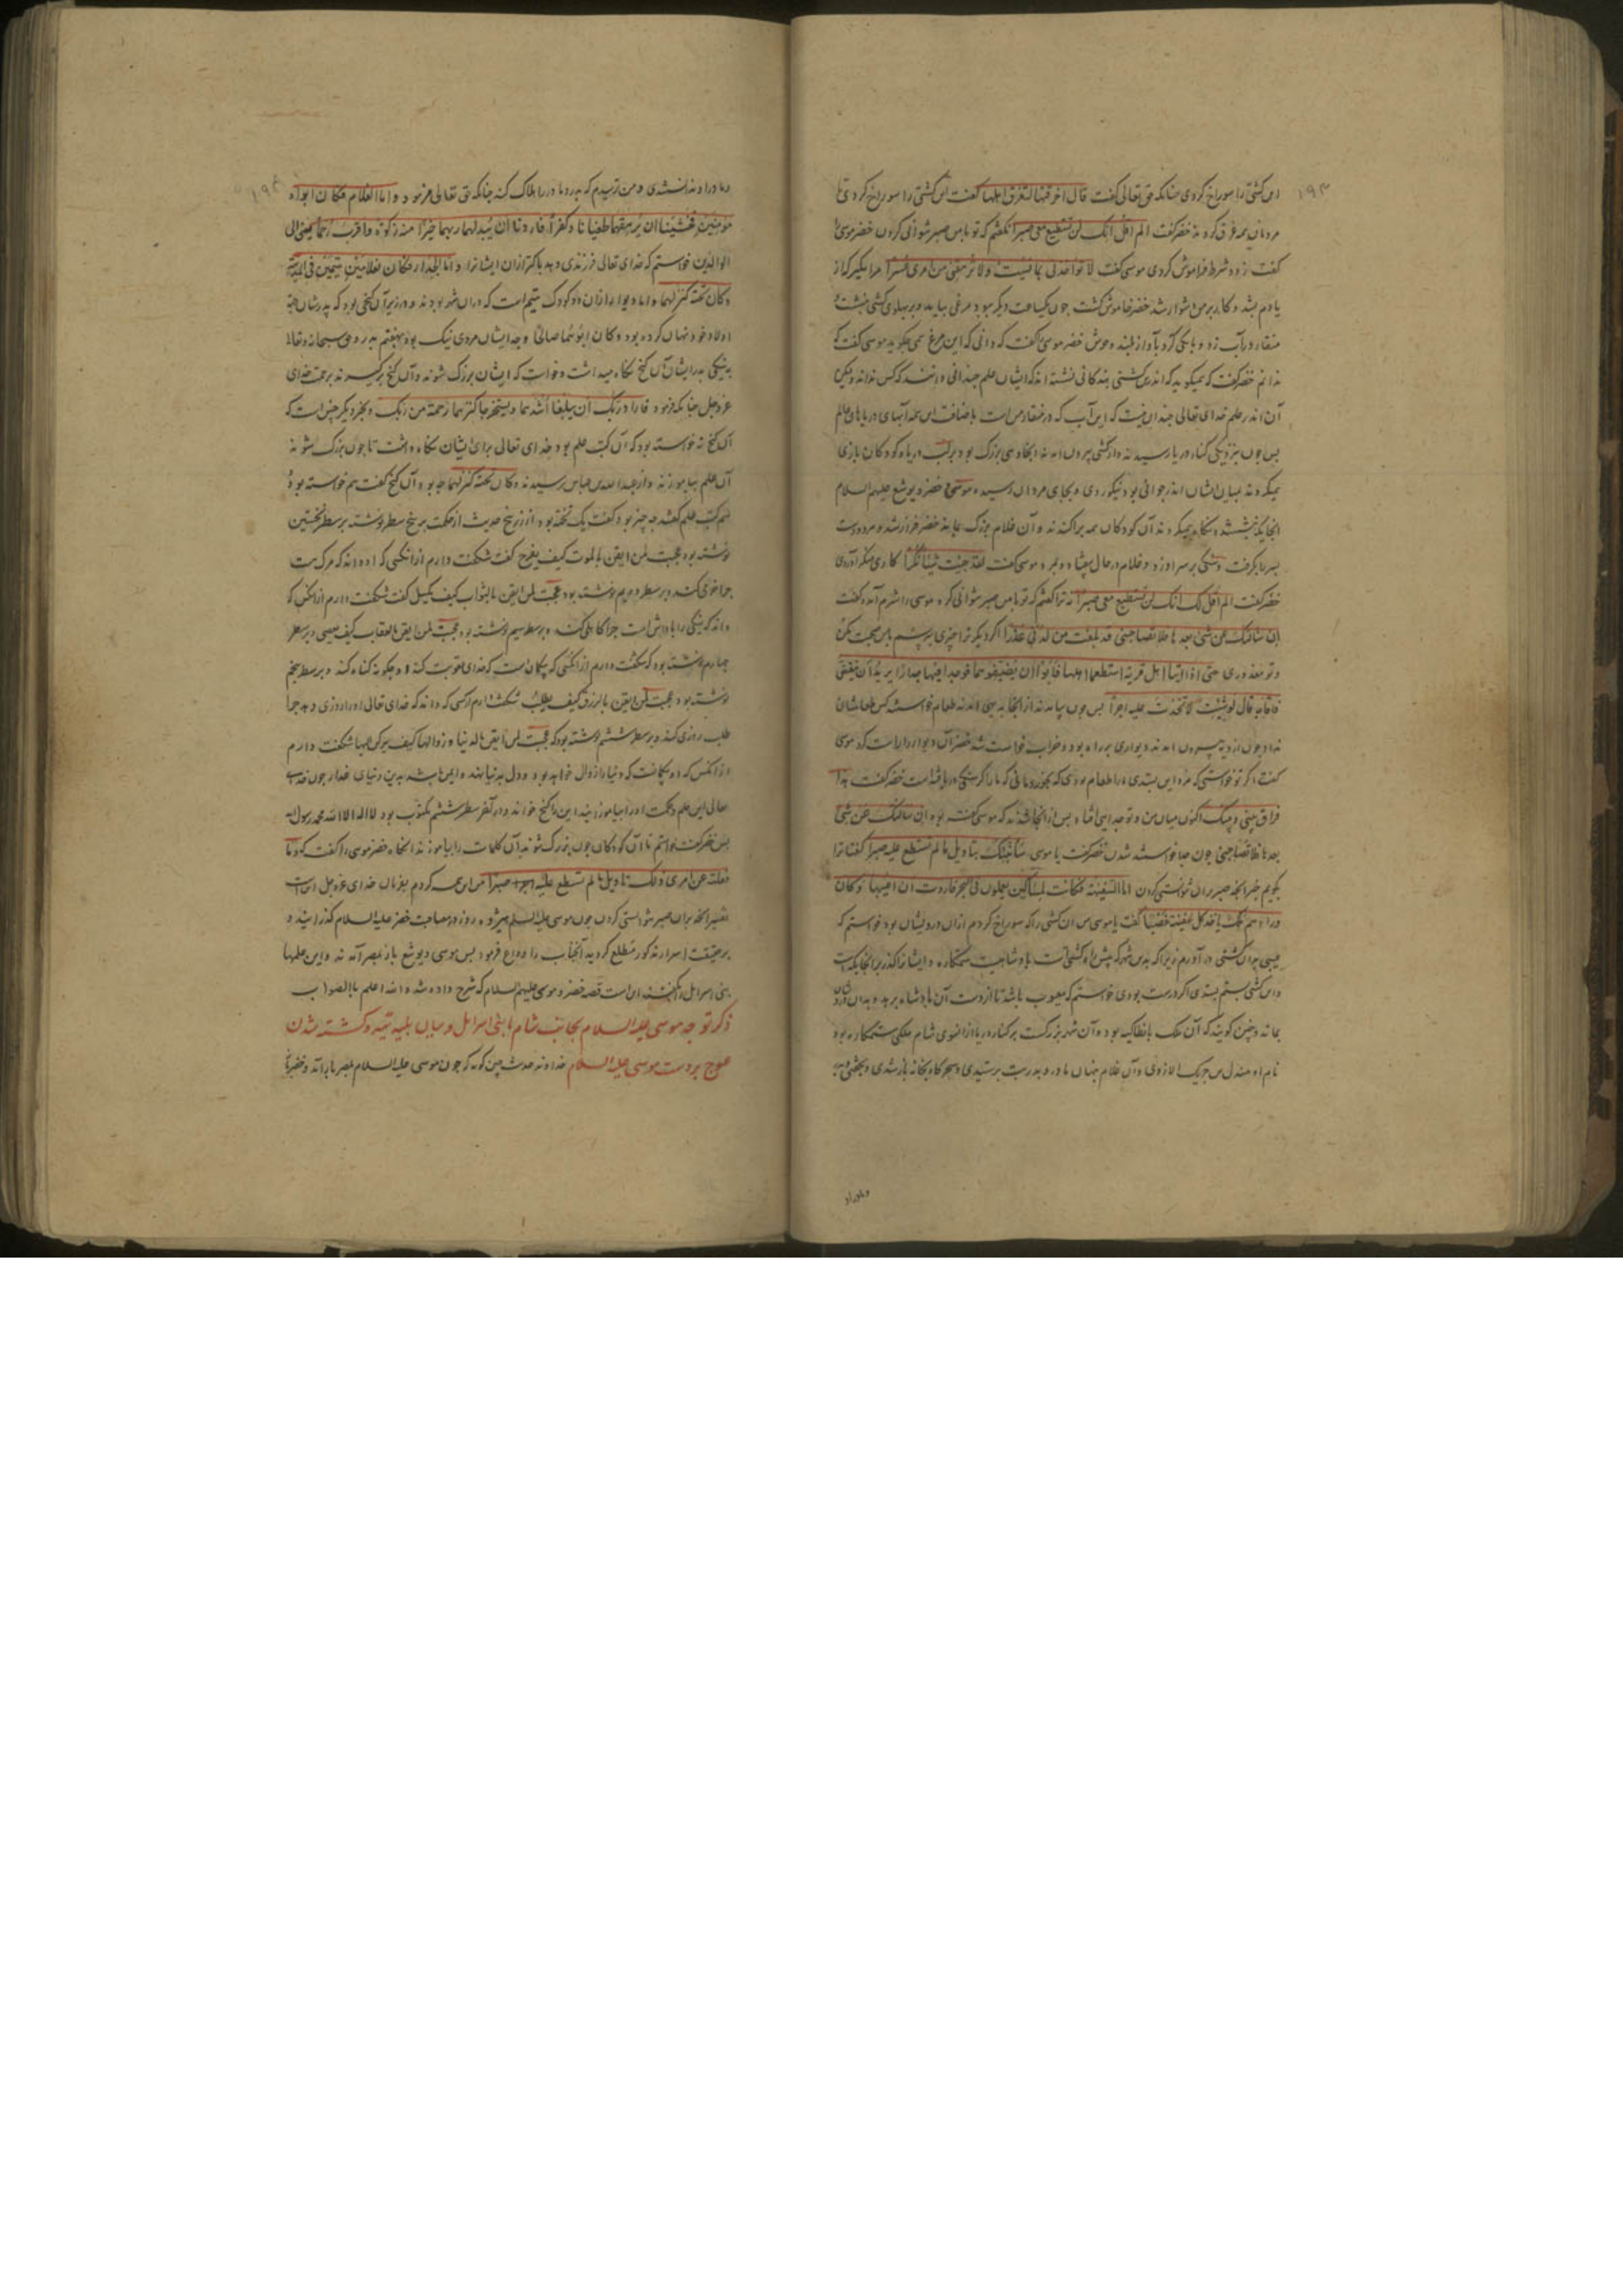 ۱۹۳
این کشتی را سوراخ کردی چنانکه حق تعالی گفت قال اخرقتها لتغرق اهلها گفت این کشتی را سوراخ کردی تا
مردمان همه غرق کردند خضر گفت الم اقل انک لن تستطیع معی صبرا نگفتم که تو با من صبر نتوانی کردن خضر موسی
گفت زود شرط فراموش کردی موسی گفت لا تواخذنی بما نسیت ولا ترهقنی من امری عسرا مرا مگیر که از
یادم بشد و کار بر من دشوار شد خضر خاموش گشت چون یکساعت دیگر ببود مرغی بیاید و بر پهلوی کشتی بنشست
منقار در آب زد و بانگی کرد بآواز بلند و خوش خضر موسی را گفت که دانی که این مرغ همی چگوید موسی گفت که
ندانم خضر گفت که میگوید که اندرین کشتی بندگانی نشسته اند که ایشان علم چندانی دانند که کس نداند ولیکن
آن اندر علم خدای تعالی چندان نیست که این آب که در منقار من است باضافت این همه آبهای دریاهای عالم
پس چون بنزدیکی کناره دریا رسیدند و از کشتی بیرون آمدند و بجا دهی بزرگ بود بر لب دریا و کودکان بازی
میکردند بمیان ایشان اندر جوانی بود نیکوروی و بجای مردان رسیده موسی و خضر و یوشع علیهم السلام
آنجا یکه بنشستند و نگاه میکردند آن کودکان همه پراکندند و آن غلام بزرگ بماند خضر فراز شد و مر دست
پسر را بگرفت و سنگی بر سر او زد و غلام در حال بیفتاد و بمرد موسی گفت لقد جئت شیئا نکرا کاری منکر آوردی
خضر گفت الم اقل لک انک لن تستطیع معی صبرا نه ترا گفتم که تو با من صبر نتوانی کرد موسی را شرم آمد و گفت
ان سألتک عن شئ بعدها فلا تصاحبنی قد بلغت من لدنی عذرا اگر دیگر ترا چیزی بپرسم با من صحبت مکن
و تو معذوری حتی اذا اتیا اهل قریة استطعما اهلها فابوا ان یضیفوهما فوجدا فیها جدارا یرید ان ینقض
فاقامه قال لو شئت لاتخذت علیه اجرا پس چون بیامدند از آنجا بدیهی آمدند طعام خواستند کس طعامشان
نداد چون از دیه بیرون آمدند دیواری بر راه بود و خراب خواست شد خضر آن دیوار را راست کرد موسی
گفت اگر تو خواستی که مزد این بستدی ما را طعام بودی که بخوردمانی که ما را گرسنگی دریافته است خضر گفت هذا
فراق بینی و بینک اکنون میان من و تو جدایی افتاد پس از آنجا شدند که موسی گفته بود ان سألتک عن شئ
بعدها فلا تصاحبنی چون جدا خواستند شدن خضر گفت یا موسی سأنبئک بتاویل ما لم تستطع علیه صبرا گفتا ترا
بگویم خبر آنچه صبر بران نتوانستی کردن اما السفینة فکانت لمساکین یعملون فی البحر فاردت ان اعیبها و کان
وراءهم ملک یاخذ کل سفینة غصبا گفت یا موسی من آن کشتی را که سوراخ کردم ازان درویشان بود خواستم که
عیبی بران کشتی در آورم زیرا که بدین شهر که پیش راه کشتی است پادشاهیست ستمکاره و ایشانرا گذر بر آنجایگه است
و این کشتی بستم بستدی اگر درست بودی خواستم که معیوب باشد تا از دست آن پادشاه برهد و بدان درویشان
بماند و چنین گویند که آن ملک بانطاکیه بود و آن شهر بزرگست بر کناره دریا از انسوی شام ملکی ستمکاره بود
نام او مندل بن جریک الازدی و آن غلام پنهان مادر و پدر بت پرستیدی و سحرگاه بخانه باز شدی
و مادر او
۱۹۴
و مادر او ندانستندی و من ترسیدم که پدر و مادر را هلاک کند چنانکه حق تعالی فرمود و اما الغلام فکان ابواه
مؤمنین فخشینا ان یرهقهما طغیانا و کفرا فاردنا ان یبدلهما ربهما خیرا منه زکوة و اقرب رحما یعنی الی
الوالدین خواستم که خدای تعالی فرزندی دهد پاکتر ازان ایشانرا و اما الجدار فکان لغلامین یتیمین فی المدینة
و کان تحته کنز لهما و اما دیوار ازان دو کودک یتیم است که دران شهر بودند و در زیر آن گنجی بود که پدرشان جهة
اولاد خود نهان کرده بود و کان ابوهما صالحا و جد ایشان مردی نیک بود بهفتم پدر و حق سبحانه و تعالی
به نیکی پدر ایشان آن گنج نگاه میداشت و خواست که ایشان بزرگ شوند و آن گنج برگیرند برحمت خدای
عز و جل چنانکه فرمود فاراد ربک ان یبلغا اشدهما و یستخرجا کنزهما رحمة من ربک و بخبر دیگر چنین است که
آن گنج نه خواسته بود که آن کتب علم بود خدای تعالی برای ایشان نگاه داشت تا چون بزرگ شوند
آن علم بیاموزند و از عبدالله بن عباس پرسیدند و کان تحته کنز لهما چه بود آن گنج گفت هم خواسته بود
هم کتب علم گفتند چه چیز بود گفت یک تخته بود از زر پنج حدیث از حکمت بر پنج سطر نوشته بر سطر نخستین
نوشته بود عجبت لمن ایقن بالموت کیف یفرح گفت شگفت دارم از آنکسی که او داند که مرگ هست
چرا خرمی کند و بر سطر دویم نوشته بود عجبت لمن ایقن بالثواب کیف یکسل گفت شگفت دارم از آنکس که
داند که نیکی را پاداش است چرا کاهلی کند و بر سطر سیم نوشته بود عجبت لمن ایقن بالعقاب کیف یعصی و بر سطر
چهارم نوشته بود که شگفت دارم از آنکسی که بیگمان است که خدای عقوبت کند و چگونه گناه کند و بر سطر پنجم
نوشته بود عجبت لمن ایقن بالرزق کیف یطلب شگفت دارم از کسی که داند که خدای تعالی او را روزی دهد چرا
طلب روزی کند و بر سطر ششم نوشته بود که عجبت لمن ایقن بالدنیا و زوالها کیف یرکن الیها شگفت دارم
از آنکس که او بیگمانست که دنیا را زوال خواهد بود و دل بدنیا نهد و ایمن باشد بدین دنیای غدار چون خدای
تعالی این علم و حکمت او را بیاموزد این را گنج خواند و در آخر سطر ششم مکتوب بود لا اله الا الله محمد رسول الله
پس خضر گفت خواستم تا آن کودکان چون بزرگ شوند آن کلمات را بیاموزند آنگاه خضر موسی را گفت که و ما
فعلته عن امری ذلک تاویل ما لم تسطع علیه صبرا من این همه کردم بفرمان خدای عز و جل این است
تفسیر آنچه بران صبر نتوانستی کردن چون موسی علیه السلم روز در مصاحبت خضر علیه السلام گذرانید و
بر حقیقت اسرار مذکور مطلع گردید آنجناب را وداع فرمود پس موسی و یوشع باز بمصر آمدند و این علمها
بنی اسرائیل را گفتند این است قصه خضر و موسی علیهم السلام که شرح داده شد والله اعلم بالصواب
ذکر توجه موسی علیه السلام بجانب شام با بنی اسرائیل و بیان بلیه تیه و کشته شدن
عوج بر دست موسی علیه السلام خداوند حدیث چنین گوید که چون موسی علیه السلام بمصر باز آمد و خضر را